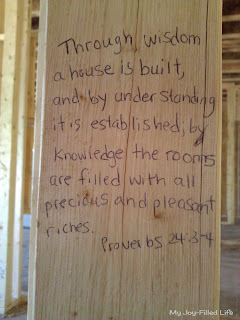 Through wisdom
a house is built,
and by understanding
it is established; by
knowledge the rooms
are filled with all
precious and pleasant
riches.
Proverbs 24:3-4
My Joy-Filled Life